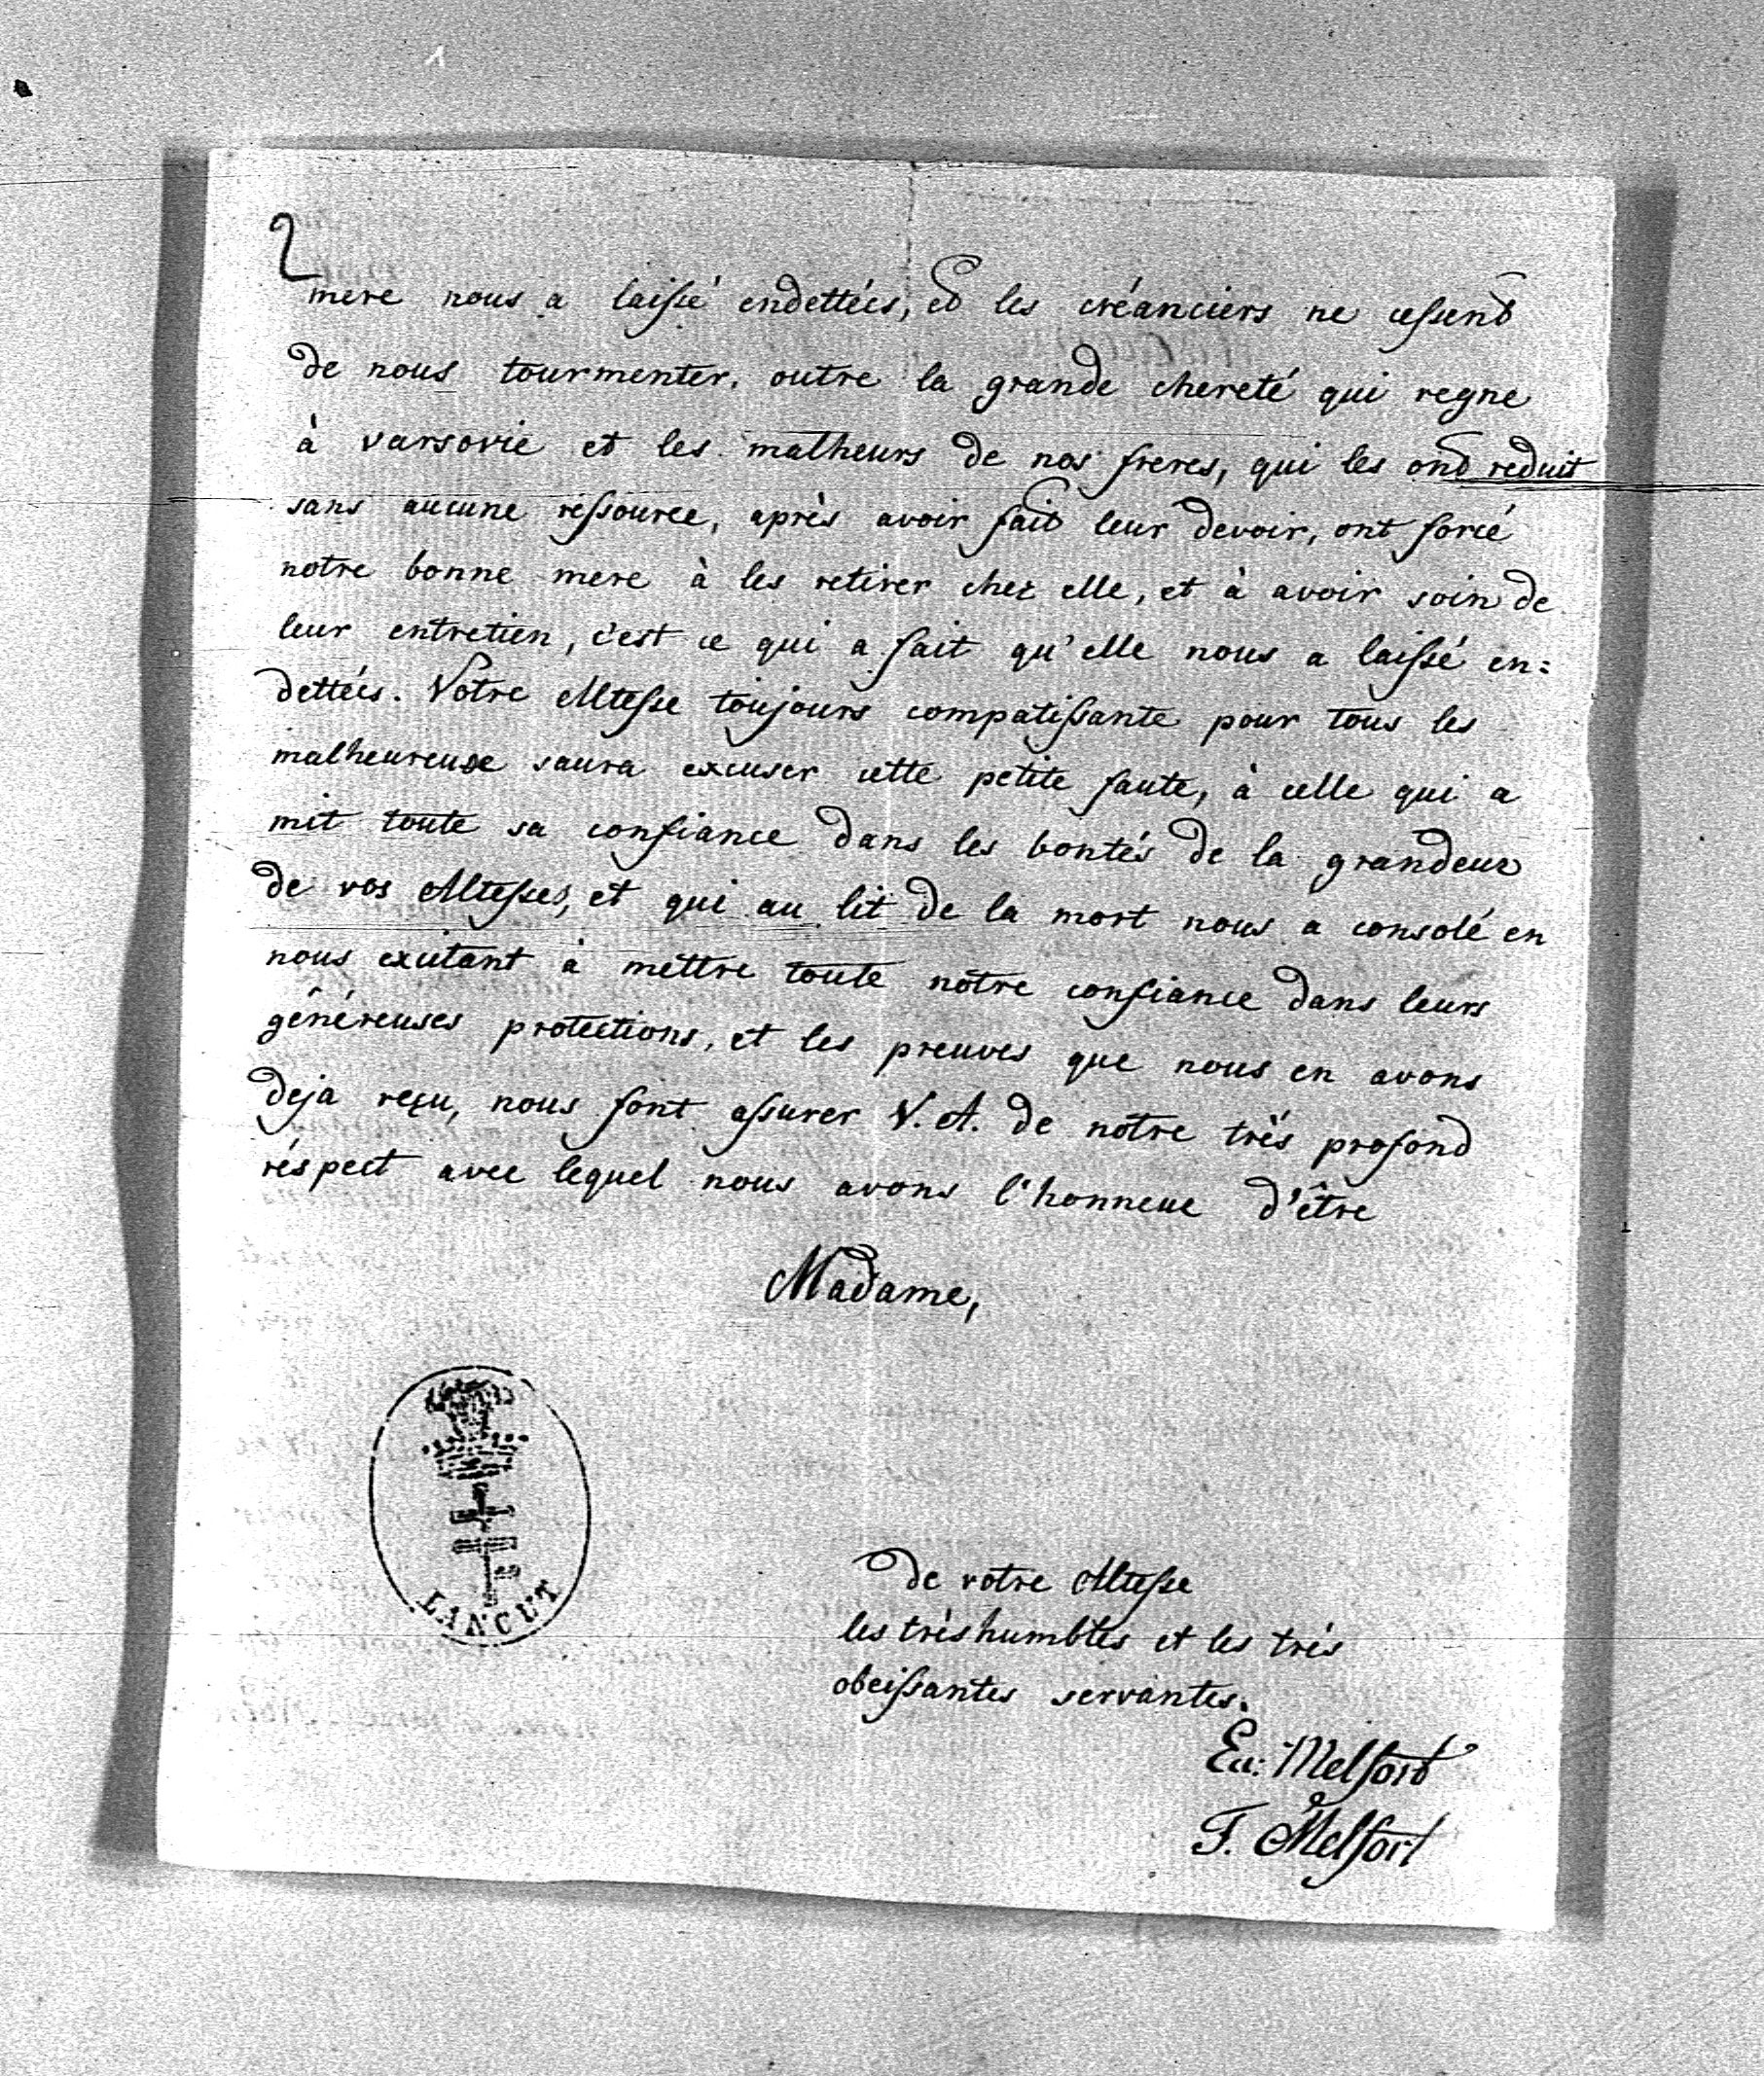 2
mere nous a laissé endettées, et les créanciers ne cessent
de nous tourmenter. outre la grande chereté qui regne
à varsovie et les malheurs de nos freres, qui les ont reduit
sans aucune ressource, après avoir fait leur devoir, ont forcé
notre bonne mere à les retirer chez elle, et à avoir soin de
leur entretien, c'est ce qui a fait qu'elle nous a laissé en=
dettées. Votre Altesse toujours compatissante pour tous les
malheureuse saura excuser cette petite faute, à celle qui a
mit toute sa confiance dans les bontés de la grandeur
de vos Altesses, et qui au lit de la mort nous a consolé en
nous exitant à mettre toute notre confiance dans leurs
généreuses protections, et les preuves que nous en avons
deja reçu, nous font assurer V. A. de notre très profond
réspect avec lequel nous avons l'honneur d'être
Madame,
LANCUT
De votre Altesse
les très humbles et les très
obeissantes servantes.
Eu: Melfort
F. Melfort